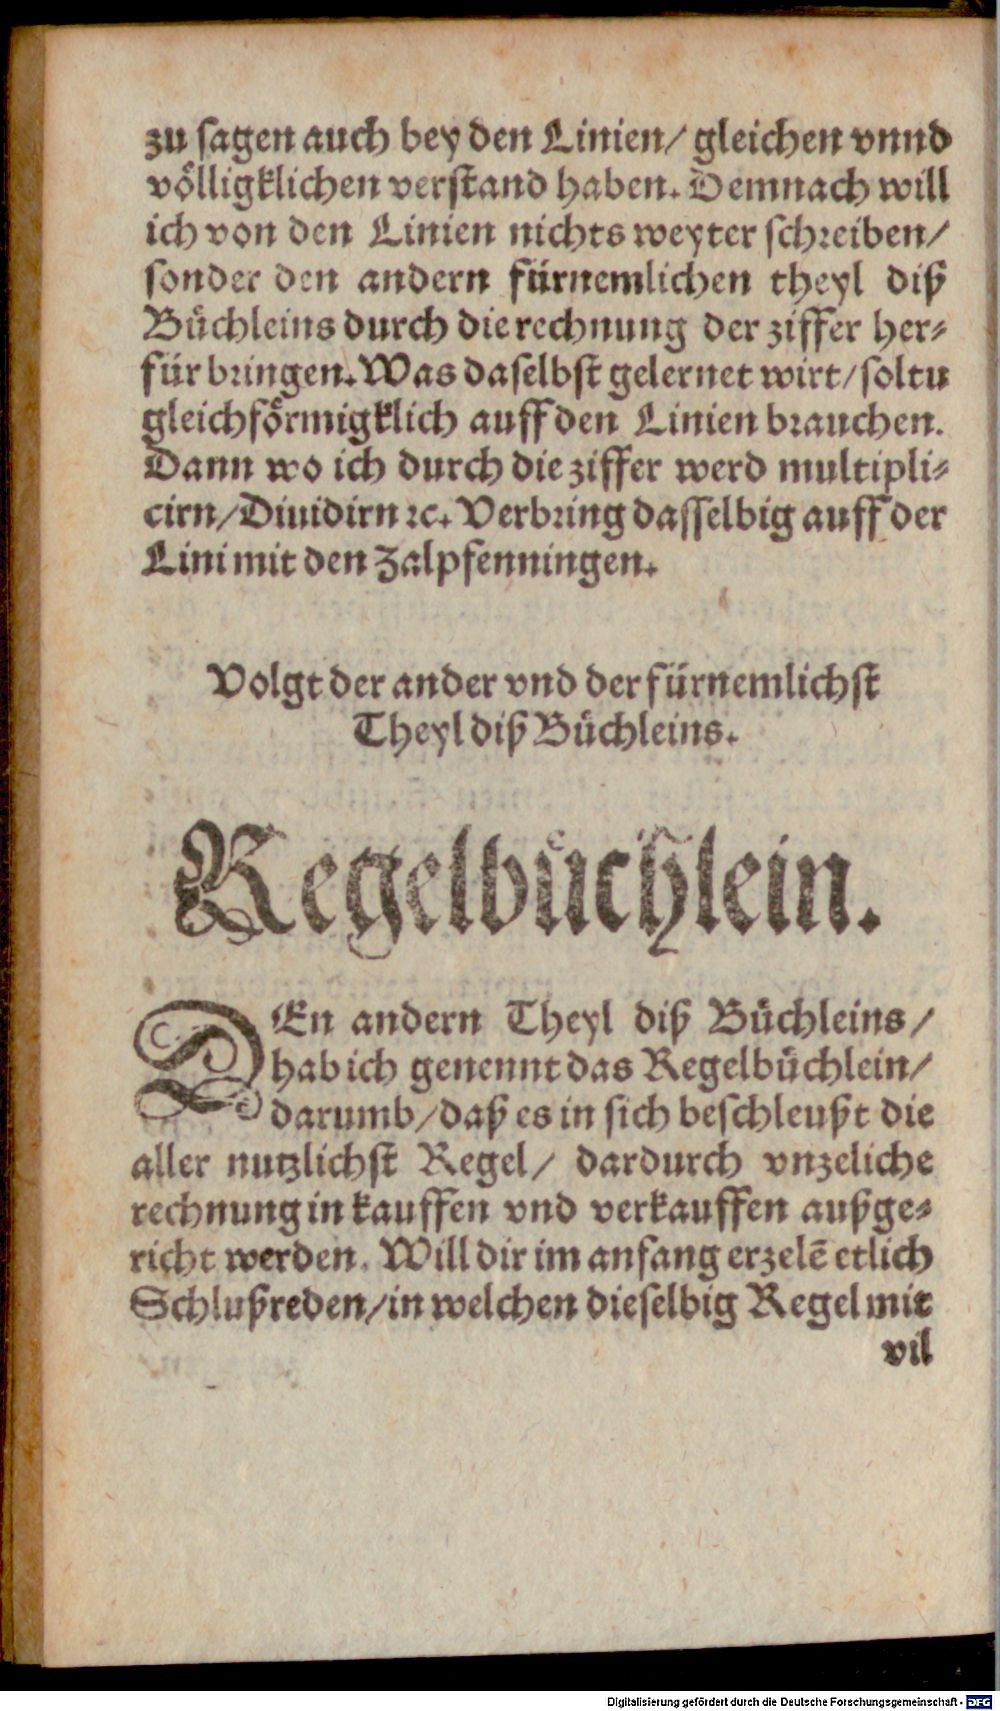 zu sagen auch bey den Linien/ gleichen vnnd
voͤlligklichen verstand haben. Demnach will
ich von den Linien nichts weyter schreiben/
sonder den andern fürnemlichen theyl diß
Buͤchleins durch die rechnung der ziffer her⸗
für bringen. Was daselbst gelernet wirt/ soltu
gleichfoͤrmigklich auff den Linien brauchen.
Dann wo ich durch die ziffer werd multipli⸗
cirn/ Diuidirn ꝛc. Verbring dasselbig auff der
Lini mit den Zalpfenningen.
Volgt der ander vnd der fürnemlichst
Theyl diß Buͤchleins.
Regelbuͤchlein.
DEn andern Theyl diß Buͤchleins/
hab ich genennt das Regelbuͤchlein/
darumb/ daß es in sich beschleußt die
aller nutzlichst Regel/ dardurch vnzeliche
rechnung in kauffen vnd verkauffen außge⸗
richt werden. Will dir im anfang erzelē etlich
Schlußreden/ in welchen dieselbig Regel mit
vil
Digitalisierung gefördert durch die Deutsche Forschungsgemeinschaft - DFG